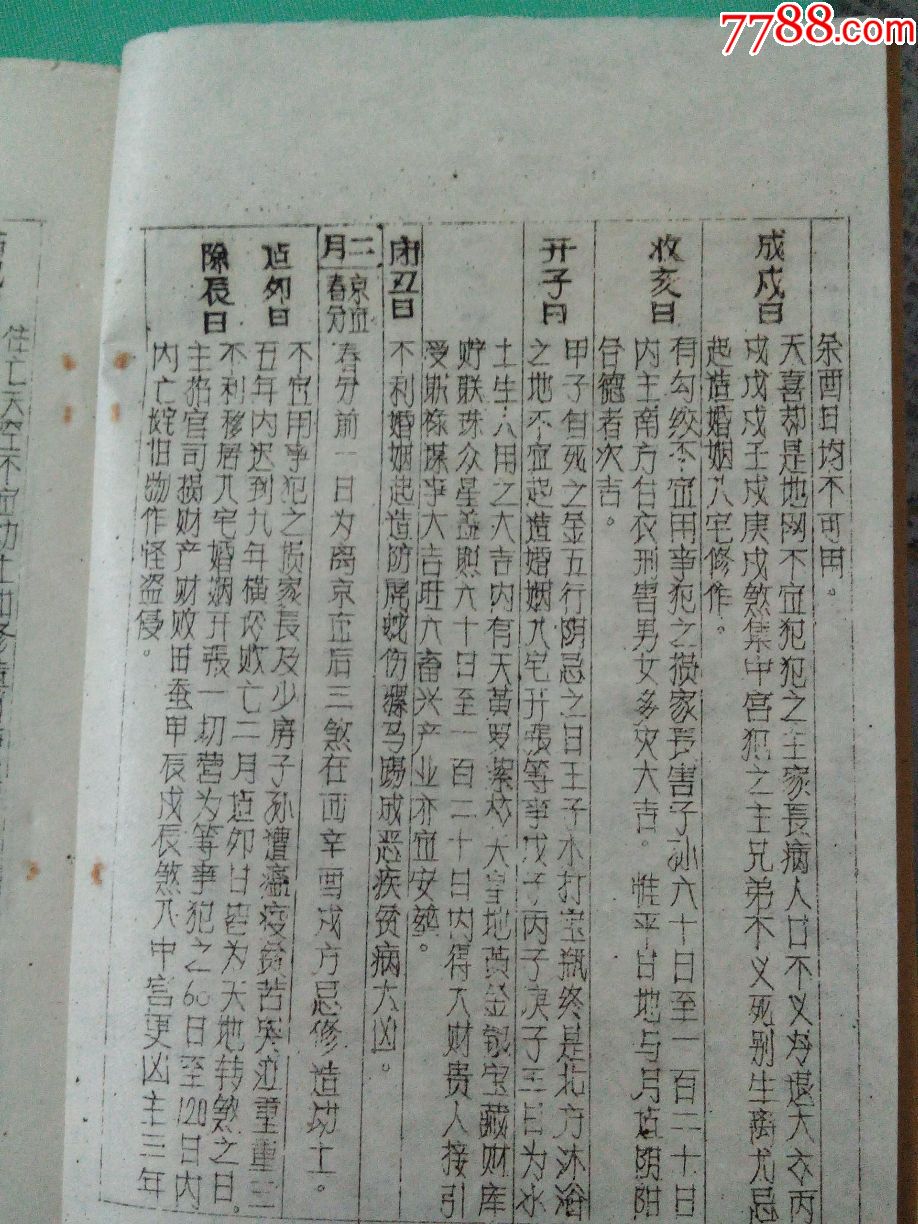 7788.com
余酉日均不可用。
成戍日
天喜却是地网不宜犯犯之主家長病人口不义冷退大亦丙
戍戍戍壬戍庚戍煞集中宫犯之主兄弟不义死别生离尤忌
起造婚姻入宅修作。
收亥日
有勾绞不宜用事犯之损家長害子孙六十日至一百二十日
内主南方估衣刑害男女多灾大吉。惟平日地与月恴阴阳
合德者次吉。
开子日
甲子自死之金五行阴忌之日壬子木打宝瓶终是北方沐浴
之地不宜起造婚姻入宅开張等事戊子丙子庚子三日为水
土生人用之大吉内有天黄罗紫 大皇地黄金银宝藏财库
贮联珠众星盖照六十日至一百二十日内得大财贵人接引
受职禄谋事大吉旺六畜兴产业亦宜安葬。
闭丑日
不利婚姻起造防虎蛇伤骡马踢成恶疾贫病大凶。
二月
惊蛰
春分
春分前一日为离 后三煞在西辛酉戍方忌修造动工。
卯日
不宜用事犯之损家長及少房子孙遭瘟疫贫苦哭泣重重三
五年内迟到九年横 败亡二月 卯日皆为天地转煞之日。
除辰日
不利移居入宅婚姻开張一切营为等事犯之60日至120日内
主招官司损财产财败田蚕甲辰戍辰煞入中宫更凶主三年
内亡 旧物作怪盗侵。